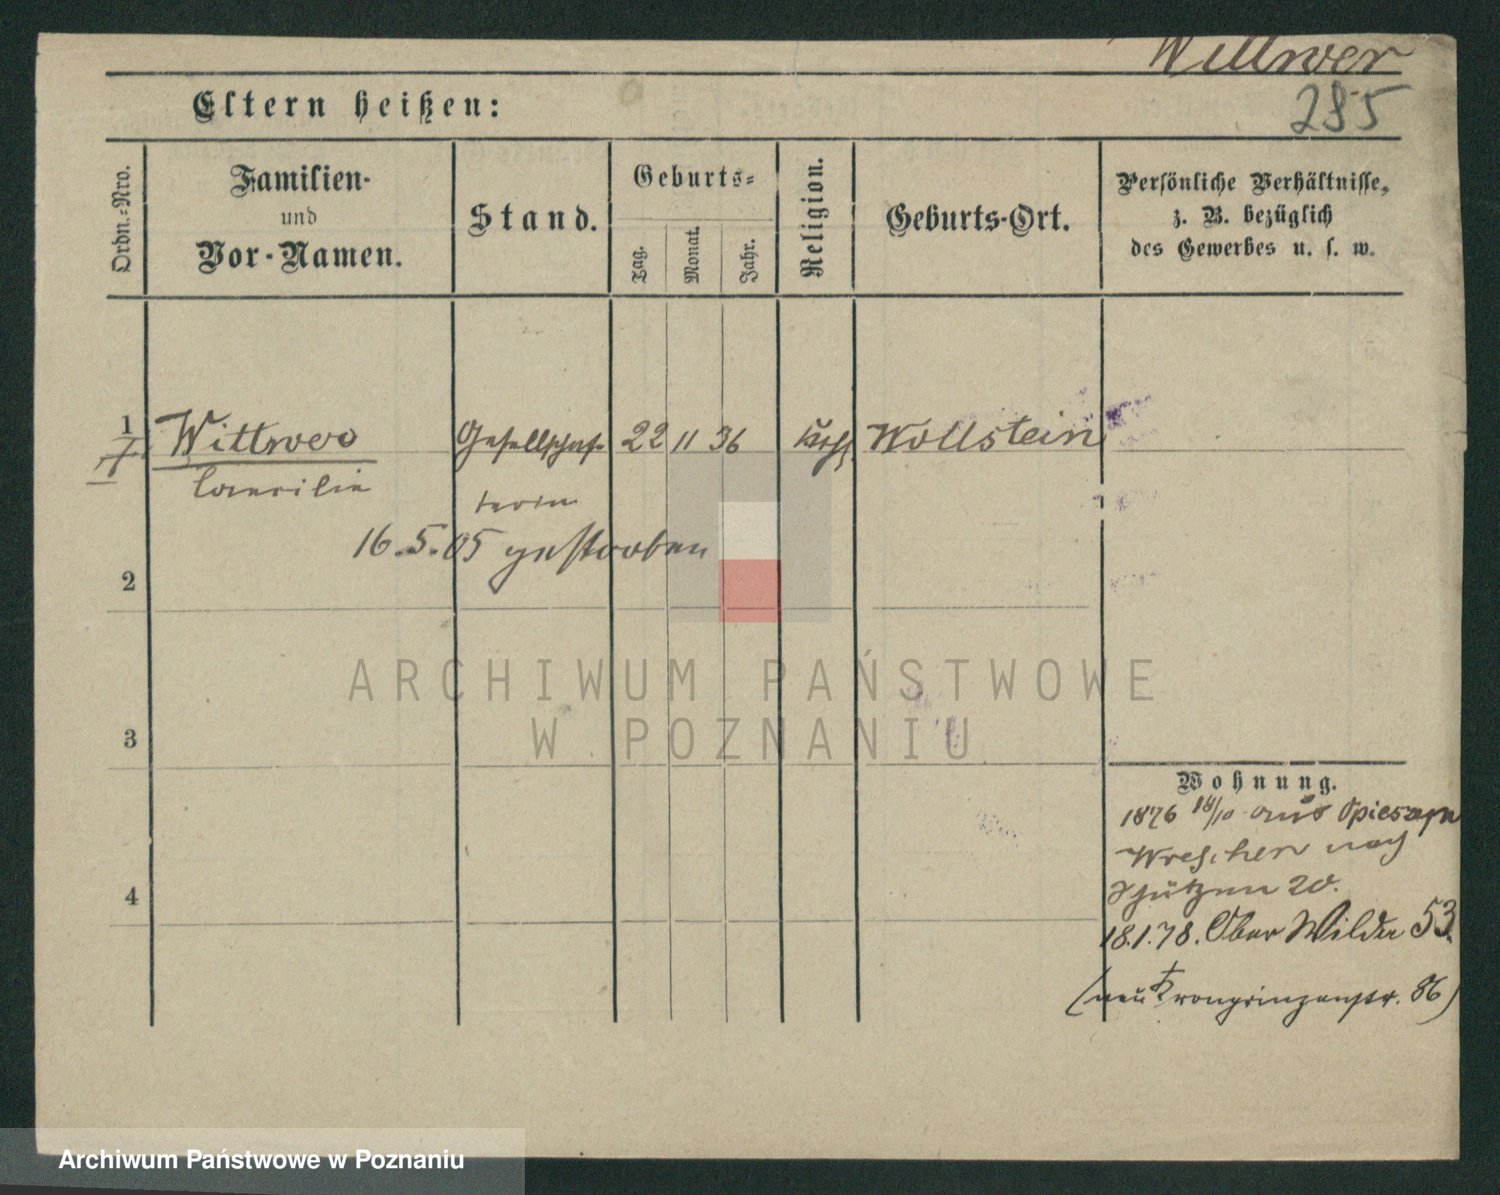 Wittwer
285
Eltern heißen:
Ordn.-Nro.
Familien-
und
Vor-Namen.
Stand.
Geburts-
Tag.
Monat.
Jahr.
Religion.
Geburts-Ort.
Persönliche Verhältnisse,
z. B. bezüglich
des Gewerbes u. s. w.
1 Wittwer Gesellschaf- 22 11 36 kath Wollstein
Caecilie
terin
16.5.05 gestorben
2
ARCHIWUM PAŃSTWOWE
W POZNANIU
3
Wohnung.
1876 18/10 aus
Wreschen nach
Schützen 20.
4
18.1.78. Ober Wilda 53.
(neu Kronprinzenstr. 86)
Archiwum Państwowe w Poznaniu